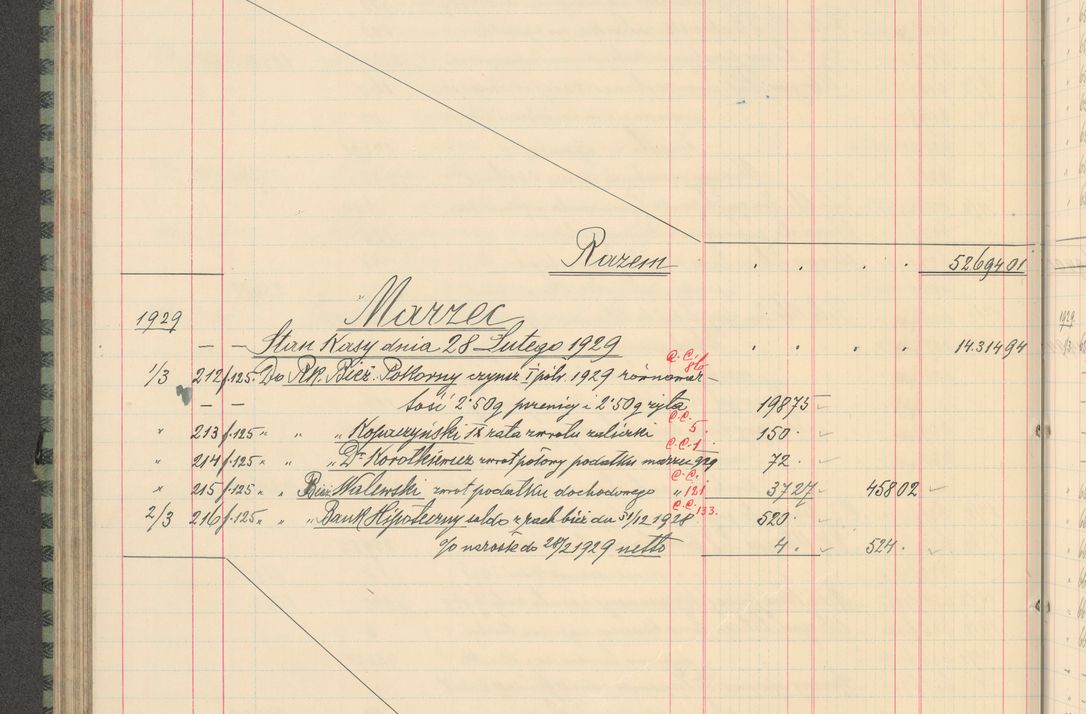 Razem . . . . 52.694 01
Marzec
1929
— — Stan Kasy dnia 28 Lutego 1929 . . . . 14.314 94
C.C. 1/
1/3 212 f.125. Do Rk. Bież. Pokorny czynsz I półr. 1929 równowar-
— — tość 2·50q pszenicy i 2·50q żyta 198 75
C.C. 5.
" 213 f.125 " " " Kopaczyński IX rata zwrotu zaliczki 150 ·
C.C. 1
" 214 f.125 " " " Dr. Korotkiewicz zwrot połowy podatku marzec 929 72 ·
C.C.
" 215 f.125 " " Bież. Walewski zwrot podatku dochodowego " 121 37 27 458 02
C.C. 133.
2/3 216 f.125 " " " Bank Hipoteczny saldo z rach bież dn 31/12 1928 520 ·
% narosłe do 28/2 1929 netto 4 · 524 ·
1929